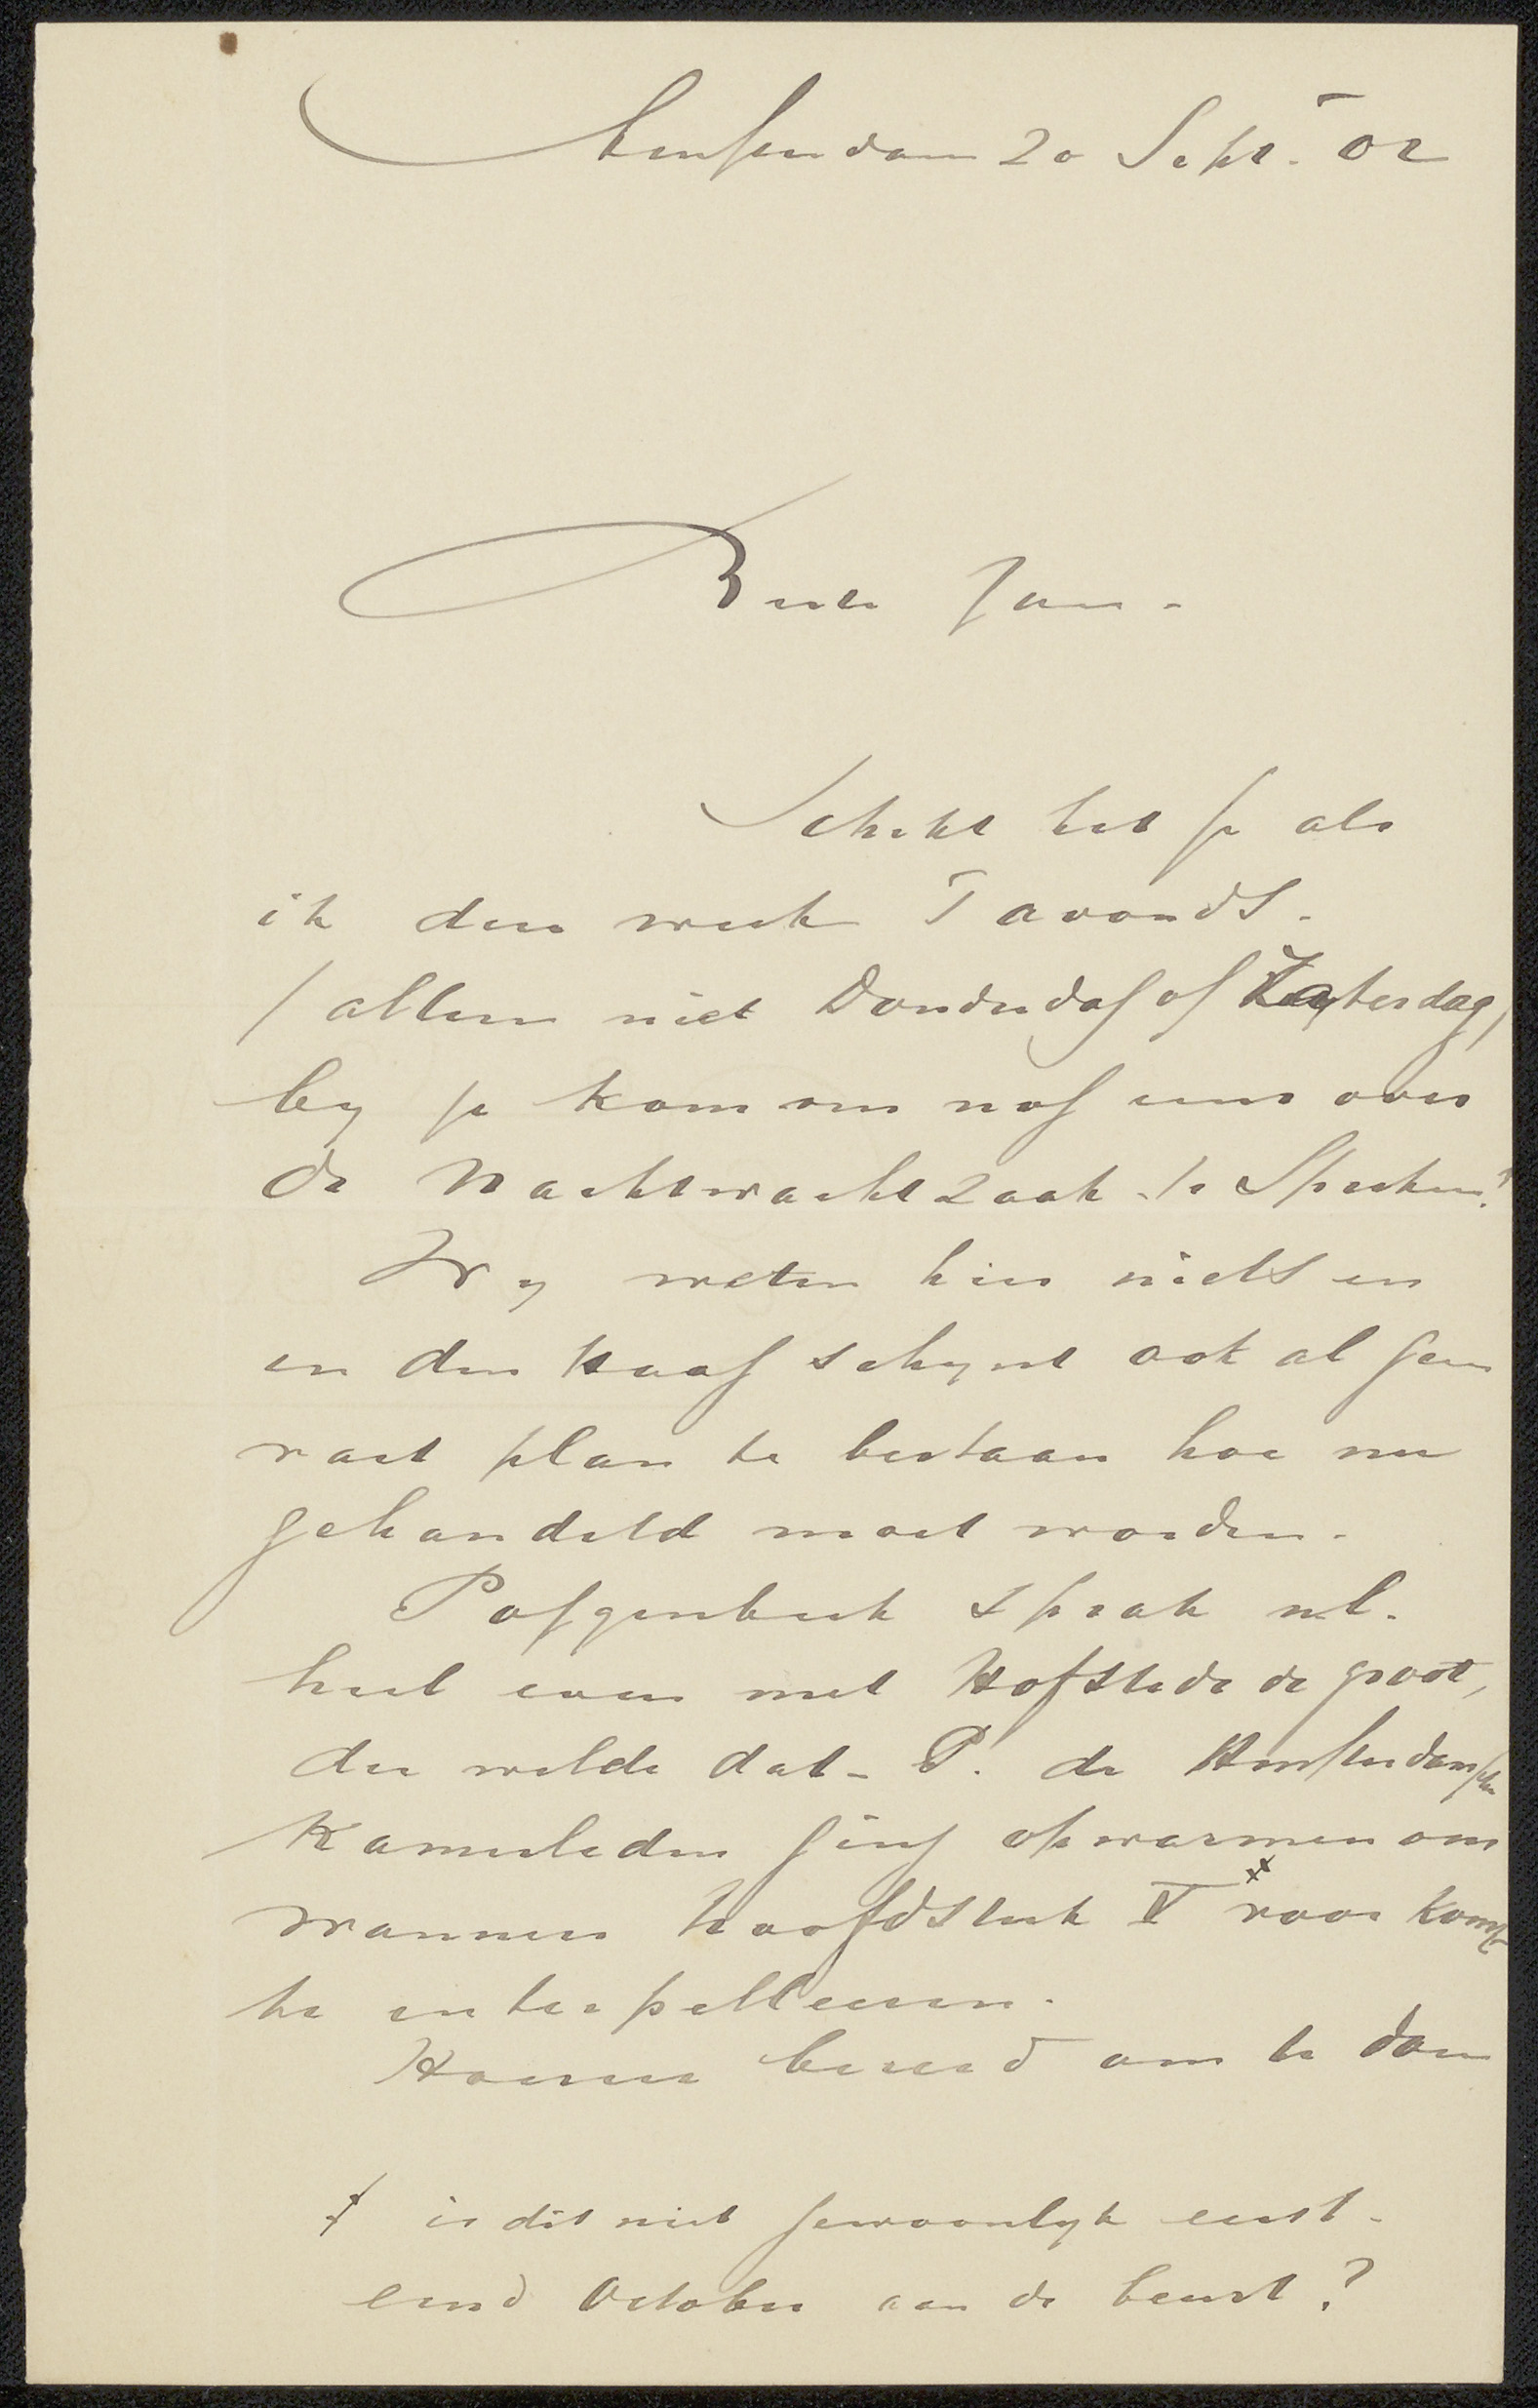 Amsterdam 20 Sept. 02
Beste Jan.
Schikt het je als
ik deze week 's avonds.
(alleen niet Donderdag of Zaterdag)
by je kom om nog eens over
de Nachtwachtzaak te spreken?
Wy weten hier niets en
in den Haag schynt ook al geen
vast plan te bestaan hoe nu
gehandeld moet worden.
Poggenbeek sprak nl.
heel even met Hofstede de Groot,
die wilde dat P. de Amsterdamsche
Kamerleden ging opwarmen om
wanneer hoofdstuk V voor komt
te interpelleeren.
Hoezeer bereid om te doen
is dit niet gewoonlyk eerst
eind October aan de beurt?